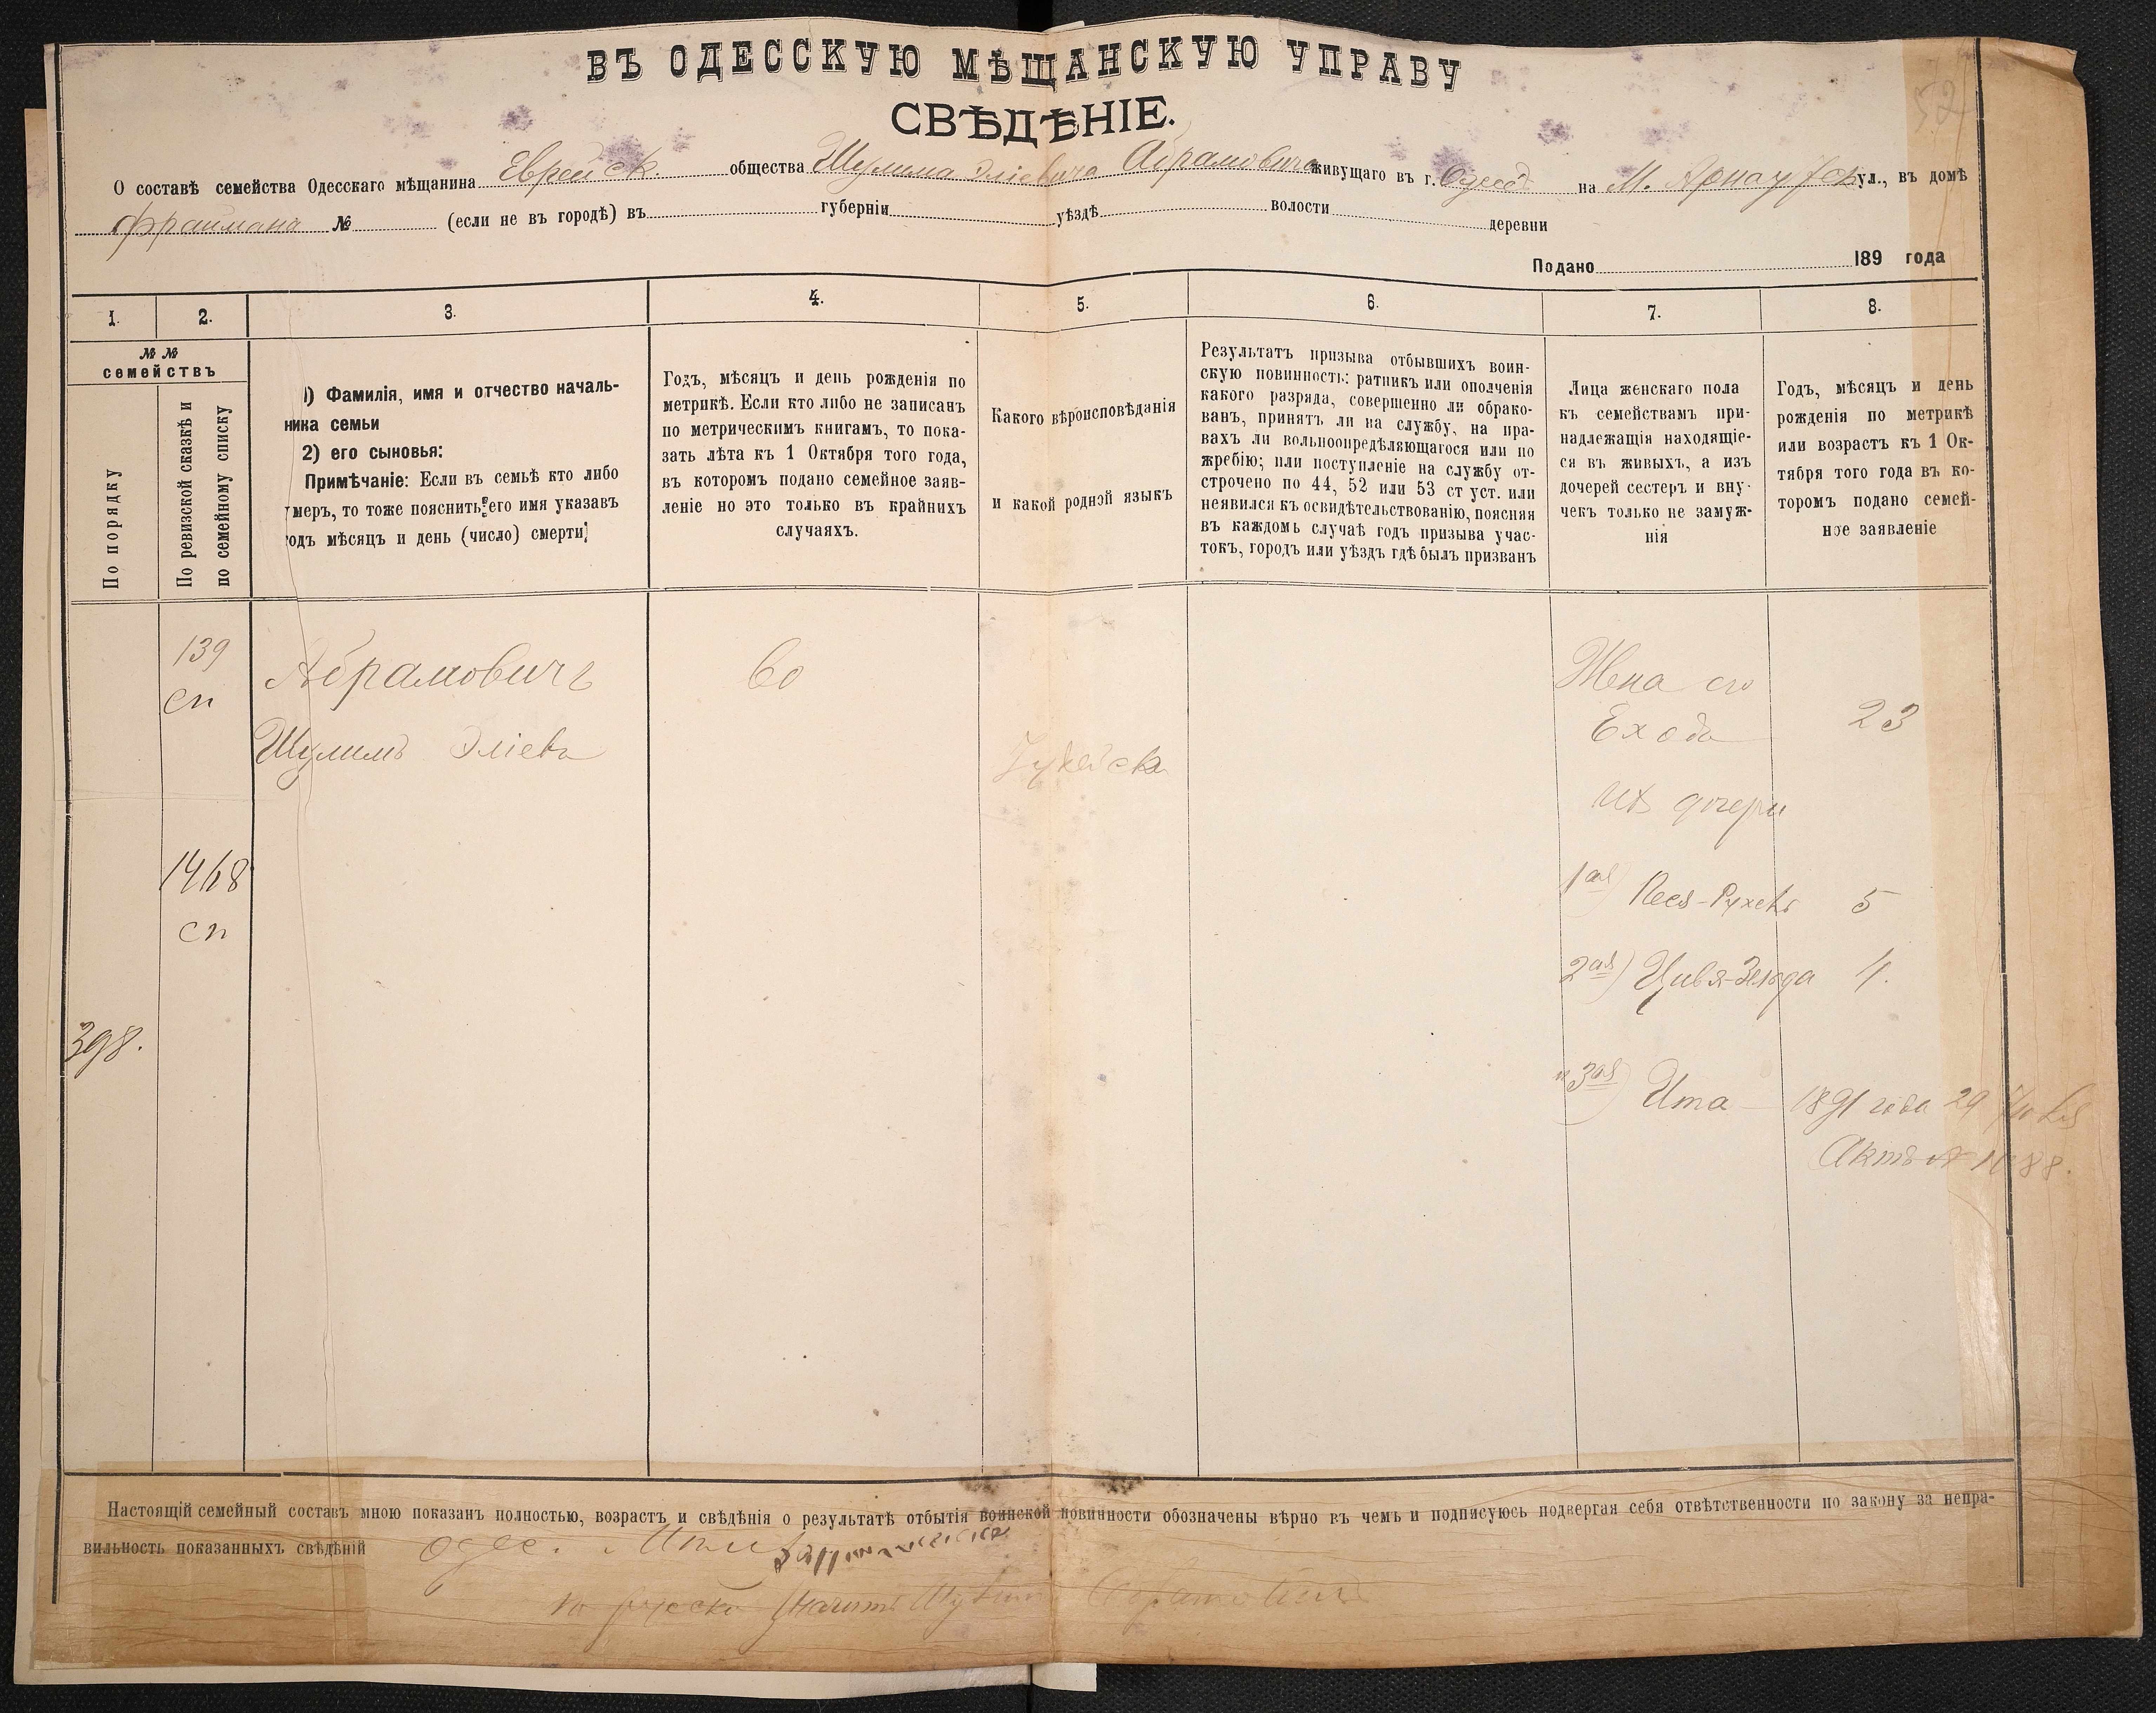 ВЪ ОДЕССКУЮ МѢЩАНСКУЮ УПРАВУ
СВѢДѢНІЕ.
О составѣ семейства Одесскаго мѣщанина Еврейск. общества Шулима Эліевича Абрамовича живущаго въ г. Одессѣ на М. Арнаутск ул., въ домѣ
Фраймана № (если не въ городѣ) въ губерніи уѣздѣ волости деревни
Подано 189 года
1. 2. 3. 4. 5. 6. 7. 8.
№ № семействъ
По порядку
По ревизской сказкѣ и
по семейному списку
1) Фамилія, имя и отчество началь-
ника семьи
2) его сыновья:
Примѣчаніе: Если въ семьѣ кто либо
умеръ, то тоже пояснить его имя указавъ
годъ мѣсяцъ и день (число) смерти
Годъ, мѣсяцъ и день рожденія по
метрикѣ. Если кто либо не записанъ
по метрическимъ книгамъ, то пока-
зать лѣта къ 1 Октября того года,
въ которомъ подано семейное заяв-
леніе но это только въ крайнихъ
случаяхъ.
Какого вѣроисповѣданія
и какой родной языкъ
Результатъ призыва отбывшихъ воин-
скую повинность: ратникъ или ополченія
какого разряда, совершенно ли обрако-
ванъ, принятъ ли на службу, на пра-
вахъ ли вольноопредѣляющагося или по
жребію; или поступленіе на службу от-
строчено по 44, 52 или 53 ст уст. или
неявился къ освидѣтельствованію, поясняя
въ каждомъ случаѣ годъ призыва учас-
токъ, городъ или уѣздъ гдѣ былъ призванъ
Лица женскаго пола
къ семействамъ при-
надлежащія находящіе-
ся въ живыхъ, а изъ
дочерей сестеръ и вну-
чекъ только не замуж-
нія
Годъ, мѣсяцъ и день
рожденія по метрикѣ
или возрастъ къ 1 Ок-
тября того года въ ко-
торомъ подано семей-
ное заявленіе
139
сп
Абрамовичъ
60
Жена его
Шулимъ Эліевъ
Ехода 23
Іудейск
ихъ дочери
1468
сп
1ая) Песя-Рухель 5
2ая) Цивя-Зельда 4.
398.
и 3ая) Ита — 1891 года 29
Актъ № 1088.
Настоящій семейный составъ мною показанъ полностью, возрастъ и свѣдѣнія о результатѣ отбытія воинской повинности обозначены вѣрно въ чемъ и подписуюсь подвергая себя отвѣтственности по закону за непра-
вильность показанныхъ свѣдѣній Одес.
по русски значитъ Шулимъ Абрамовичъ